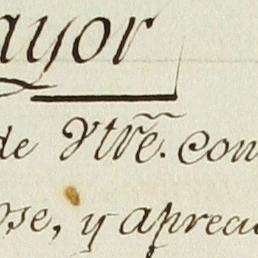 ayor
de Ytr̃e. con
se, y aprec